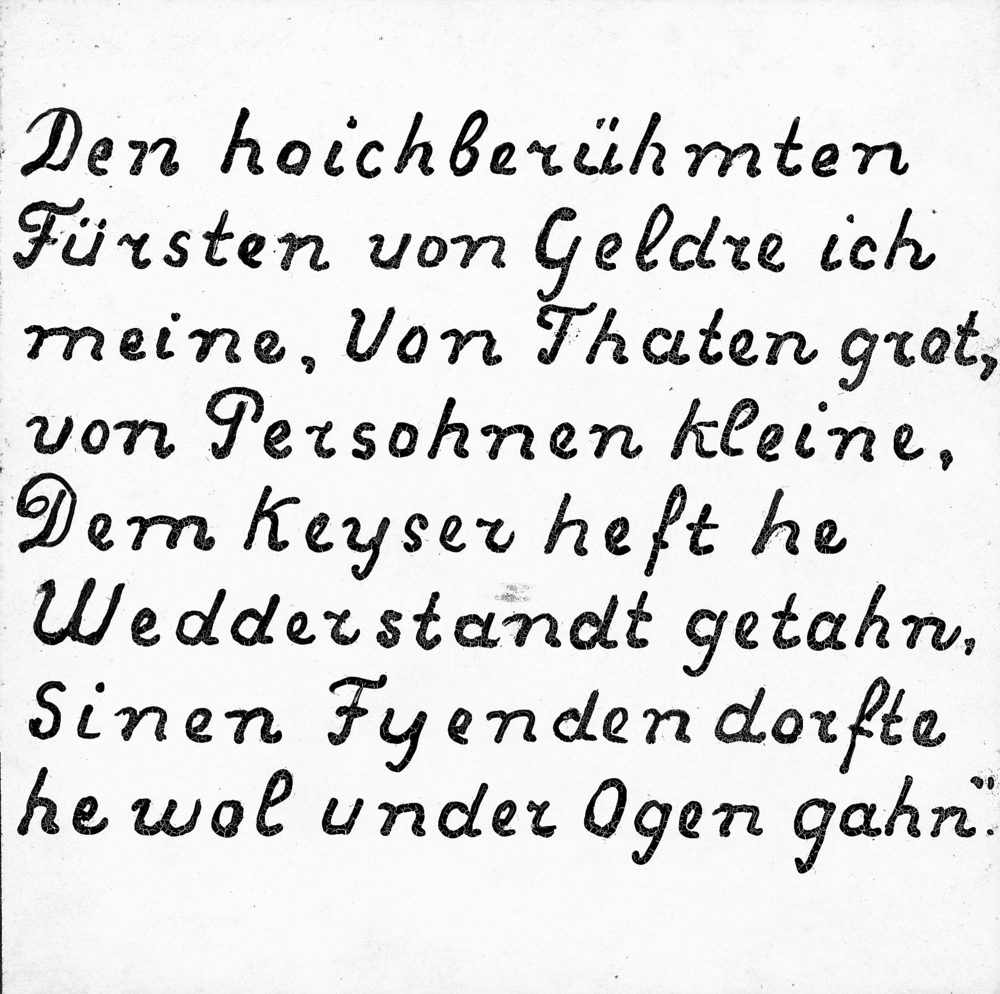 Den hoichberühmten
Fürsten von Geldre ich
meine, Von Thaten grot,
von Persohnen kleine,
Dem Keyser heft he
Wedderstandt getahn,
Sinen Fyenden dorfte
he wol under Ogen gahn".